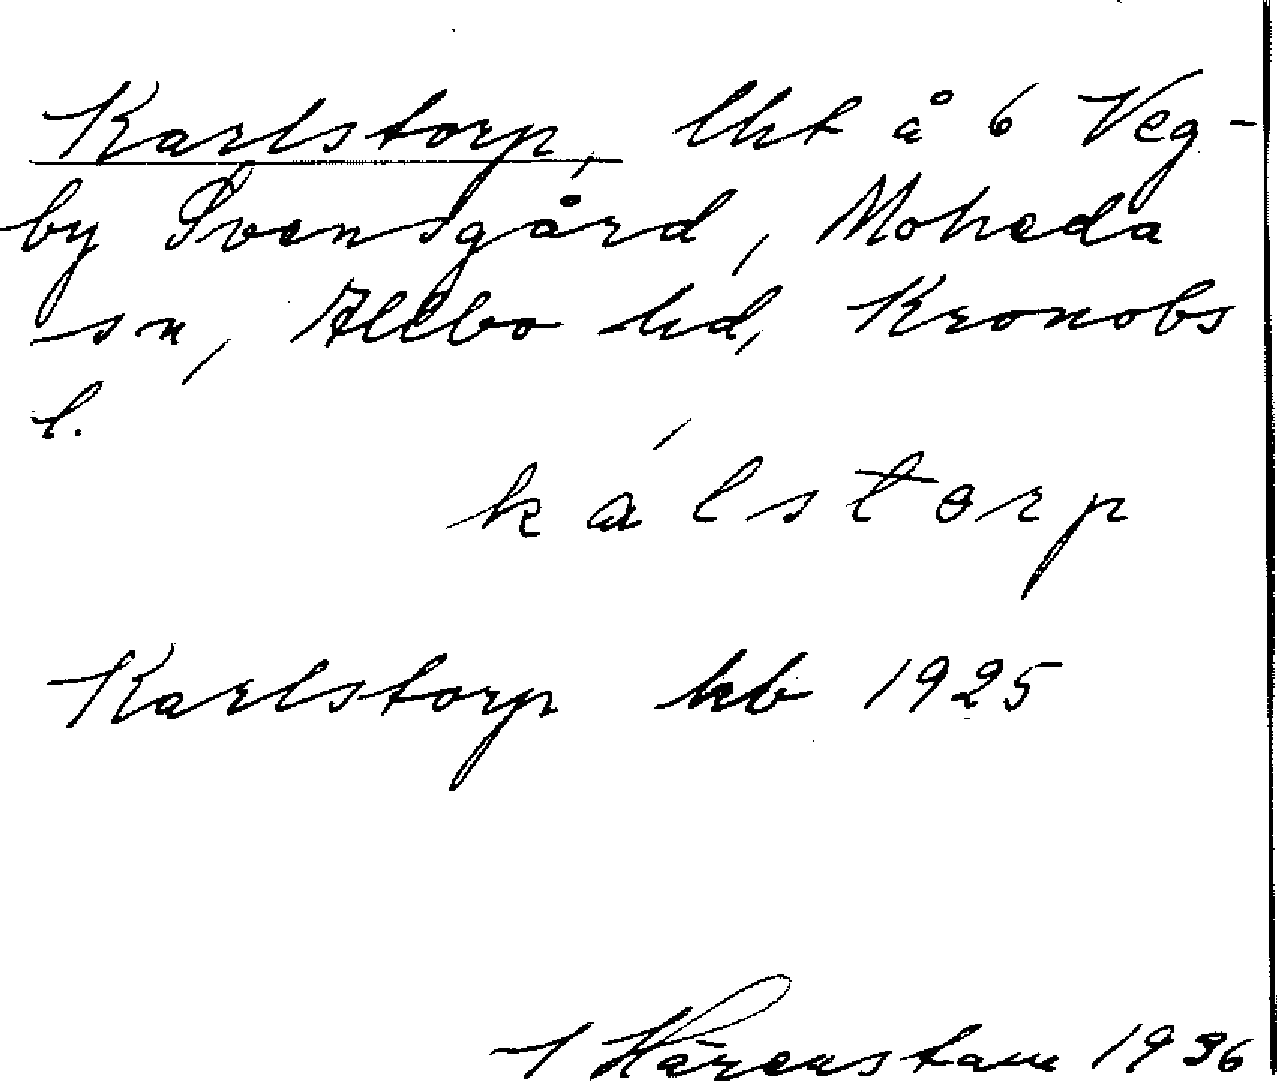 Karlstorp, lht å 6 Veg-
by Svensgård, Moheda
sn, Allbo hd, Kronobs
l.
kálstorp
Karlstorp kb 1925
1936